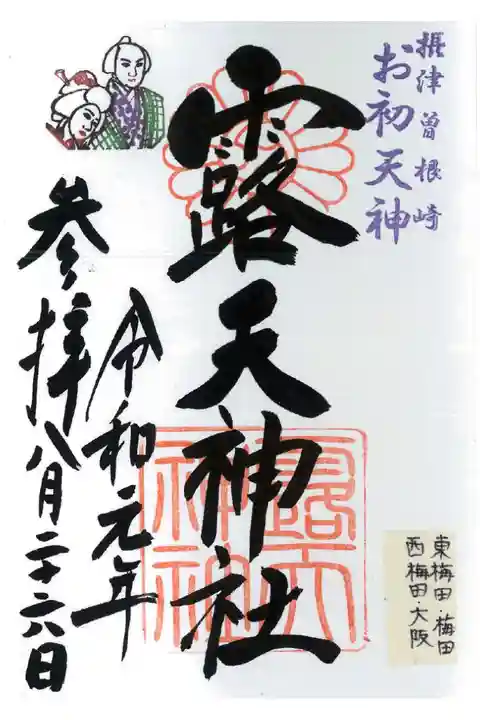 摂津曽根崎
お初天神
露天神社
令和元年
参拝八月二十六日
露天
神社
東梅田・梅田
西梅田大阪